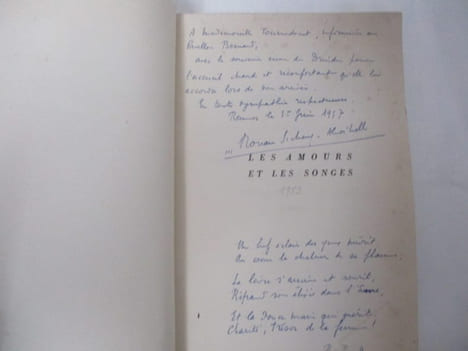 A Mademoiselle Tournedout, infirmière au
Pavillon Bernard,
avec le souvenir ému du Druide pour
l'accueil chaud et réconfortant qu'elle lui
accorda lors de son arrivée.
En toute sympathie respectueuse.
Rennes le 1er Juin 1957
LES AMOURS
ET LES SONGES
1953
Un bref éclair des yeux
la chaleur de sa flamme,
La lèvre s' et sourit,
Répand son dans l'âme,
Et la Douce main qui guérit,
Charité, trésor de la femme !